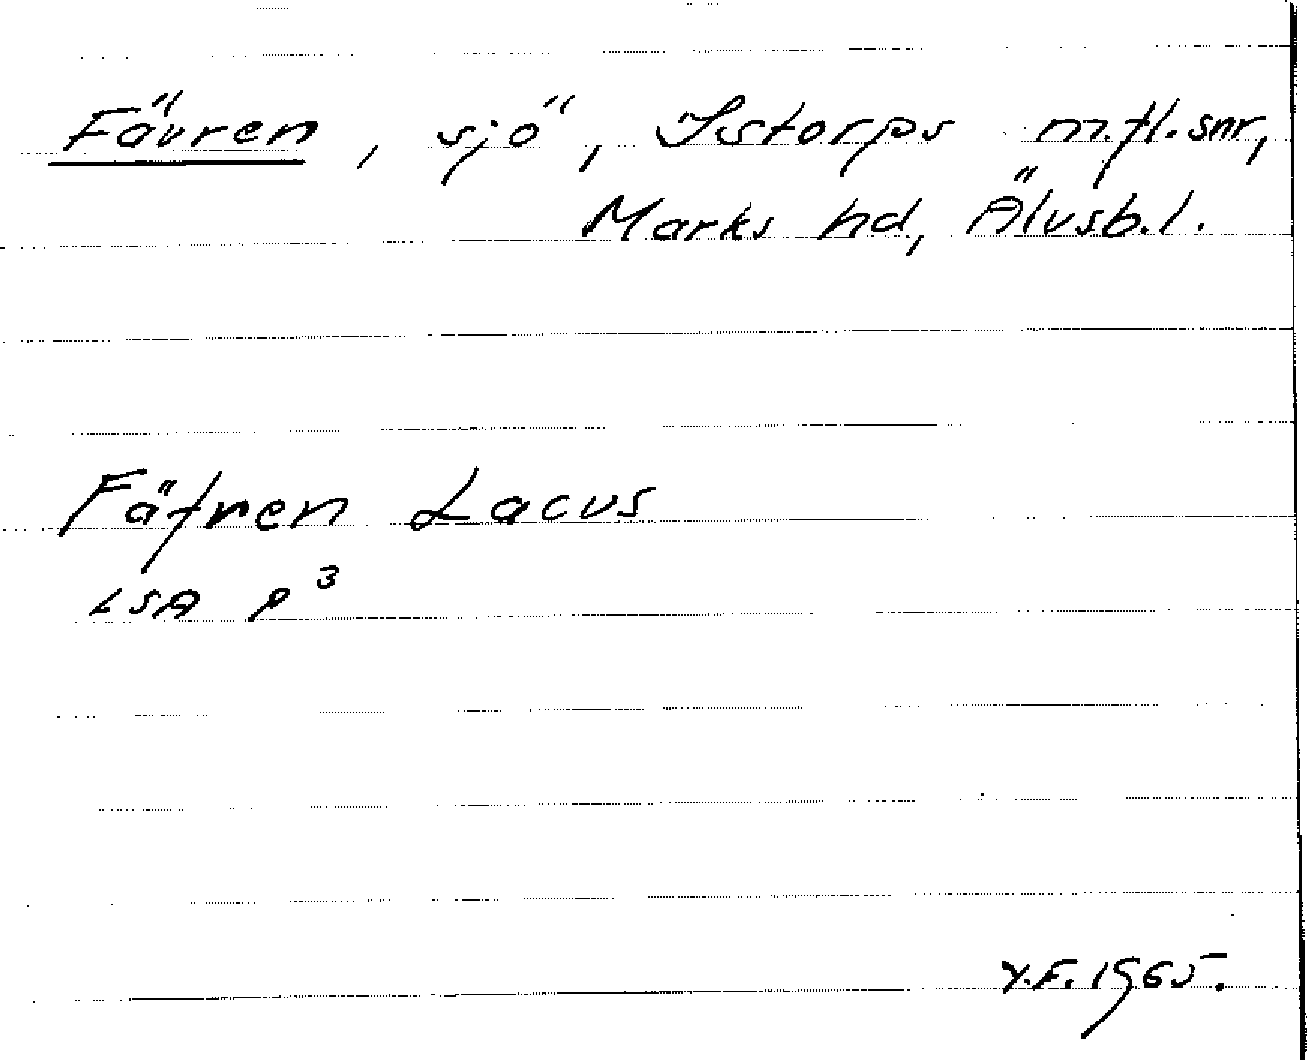 Fävren, sjö, Istorps m.fl. snr,
Marks hd, Älvsb.l.
Fäfren Lacus
LSA P³
Y.F. 1965.